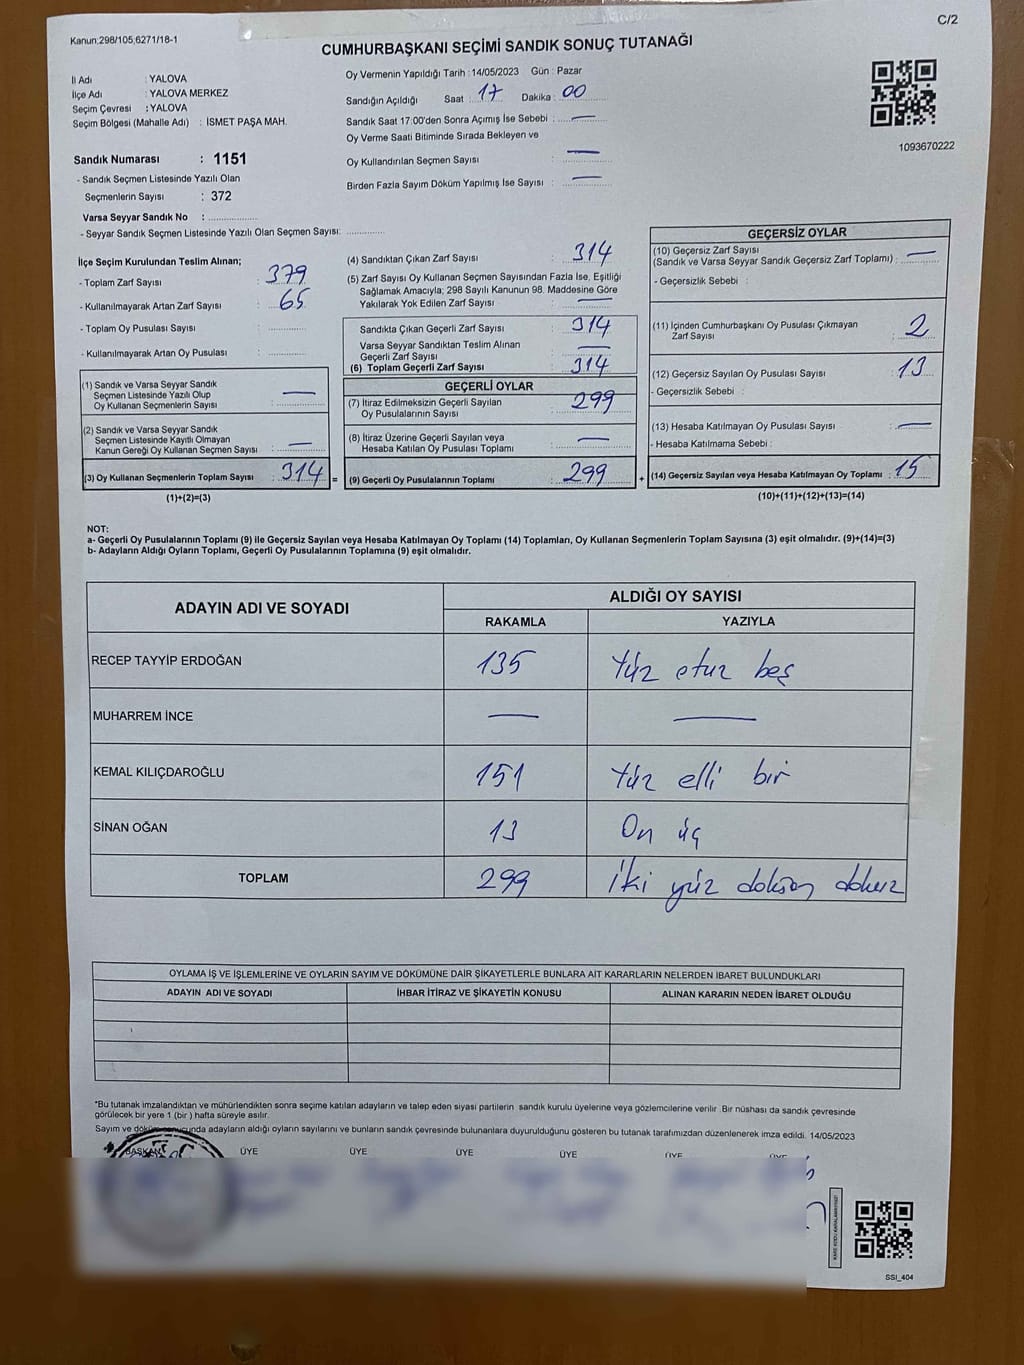 C/2
Kanun;298/105,6271/18-1
CUMHURBAŞKANI SEÇİMİ SANDIK SONUÇ TUTANAĞI
İl Adı : YALOVA
İlçe Adı : YALOVA MERKEZ
Seçim Çevresi : YALOVA
Seçim Bölgesi (Mahalle Adı) : İSMET PAŞA MAH.
Sandık Numarası : 1151
- Sandık Seçmen Listesinde Yazılı Olan
Seçmenlerin Sayısı : 372
Varsa Seyyar Sandık No :
- Seyyar Sandık Seçmen Listesinde Yazılı Olan Seçmen Sayısı:
Oy Vermenin Yapıldığı Tarih :14/05/2023 Gün : Pazar
Sandığın Açıldığı Saat : 17 Dakika : 00
Sandık Saat 17:00'den Sonra Açımış İse Sebebi : —
Oy Verme Saati Bitiminde Sırada Bekleyen ve
Oy Kullandırılan Seçmen Sayısı : —
Birden Fazla Sayım Döküm Yapılmış İse Sayısı : —
1093670222
İlçe Seçim Kurulundan Teslim Alınan;
- Toplam Zarf Sayısı : 379
- Kullanılmayarak Artan Zarf Sayısı : 65
- Toplam Oy Pusulası Sayısı :
- Kullanılmayarak Artan Oy Pusulası :
(1) Sandık ve Varsa Seyyar Sandık
Seçmen Listesinde Yazılı Olup
Oy Kullanan Seçmenlerin Sayısı : —
(2) Sandık ve Varsa Seyyar Sandık
Seçmen Listesinde Kayıtlı Olmayan
Kanun Gereği Oy Kullanan Seçmen Sayısı : —
(3) Oy Kullanan Seçmenlerin Toplam Sayısı : 314
(1)+(2)=(3)
(4) Sandıktan Çıkan Zarf Sayısı : 314
(5) Zarf Sayısı Oy Kullanan Seçmen Sayısından Fazla İse, Eşitliği
Sağlamak Amacıyla; 298 Sayılı Kanunun 98. Maddesine Göre
Yakılarak Yok Edilen Zarf Sayısı : —
Sandıkta Çıkan Geçerli Zarf Sayısı : 314
Varsa Seyyar Sandıktan Teslim Alınan
Geçerli Zarf Sayısı : —
(6) Toplam Geçerli Zarf Sayısı : 314
GEÇERLİ OYLAR
(7) İtiraz Edilmeksizin Geçerli Sayılan
Oy Pusulalarının Sayısı : 299
(8) İtiraz Üzerine Geçerli Sayılan veya
Hesaba Katılan Oy Pusulaları Toplamı : —
= (9) Geçerli Oy Pusulalarının Toplamı : 299
GEÇERSİZ OYLAR
(10) Geçersiz Zarf Sayısı
(Sandık ve Varsa Seyyar Sandık Geçersiz Zarf Toplamı) : —
- Geçersizlik Sebebi :
(11) İçinden Cumhurbaşkanı Oy Pusulası Çıkmayan
Zarf Sayısı : 2
(12) Geçersiz Sayılan Oy Pusulası Sayısı : 13
- Geçersizlik Sebebi :
(13) Hesaba Katılmayan Oy Pusulası Sayısı : —
- Hesaba Katılmama Sebebi :
+ (14) Geçersiz Sayılan veya Hesaba Katılmayan Oy Toplamı : 15
(10)+(11)+(12)+(13)=(14)
NOT:
a- Geçerli Oy Pusulalarının Toplamı (9) ile Geçersiz Sayılan veya Hesaba Katılmayan Oy Toplamı (14) Toplamları, Oy Kullanan Seçmenlerin Toplam Sayısına (3) eşit olmalıdır. (9)+(14)=(3)
b- Adayların Aldığı Oyların Toplamı, Geçerli Oy Pusulalarının Toplamına (9) eşit olmalıdır.
ADAYIN ADI VE SOYADI ALDIĞI OY SAYISI
RAKAMLA YAZIYLA
RECEP TAYYİP ERDOĞAN 135 Yüz otuz beş
MUHARREM İNCE — —
KEMAL KILIÇDAROĞLU 151 Yüz elli bir
SİNAN OĞAN 13 On üç
TOPLAM 299 İki yüz doksan dokuz
OYLAMA İŞ VE İŞLEMLERİNE VE OYLARIN SAYIM VE DÖKÜMÜNE DAİR ŞİKAYETLERLE BUNLARA AİT KARARLARIN NELERDEN İBARET BULUNDUKLARI
ADAYIN ADI VE SOYADI İHBAR İTİRAZ VE ŞİKAYETİN KONUSU ALINAN KARARIN NEDEN İBARET OLDUĞU
"Bu tutanak imzalandıktan ve mühürlendikten sonra seçime katılan adayların ve talep eden siyasi partilerin sandık kurulu üyelerine veya gözlemcilerine verilir .Bir nüshası da sandık çevresinde
görülecek bir yere 1 (bir ) hafta süreyle asılır.
Sayım ve döküm sonucunda adayların aldığı oyların sayılarını ve bunların sandık çevresinde bulunanlara duyurulduğunu gösteren bu tutanak tarafımızdan düzenlenerek imza edildi. 14/05/2023
BAŞKAN ÜYE ÜYE ÜYE ÜYE ÜYE ÜYE
KARE KODU KARALAMAYINIZ!
SSI_404